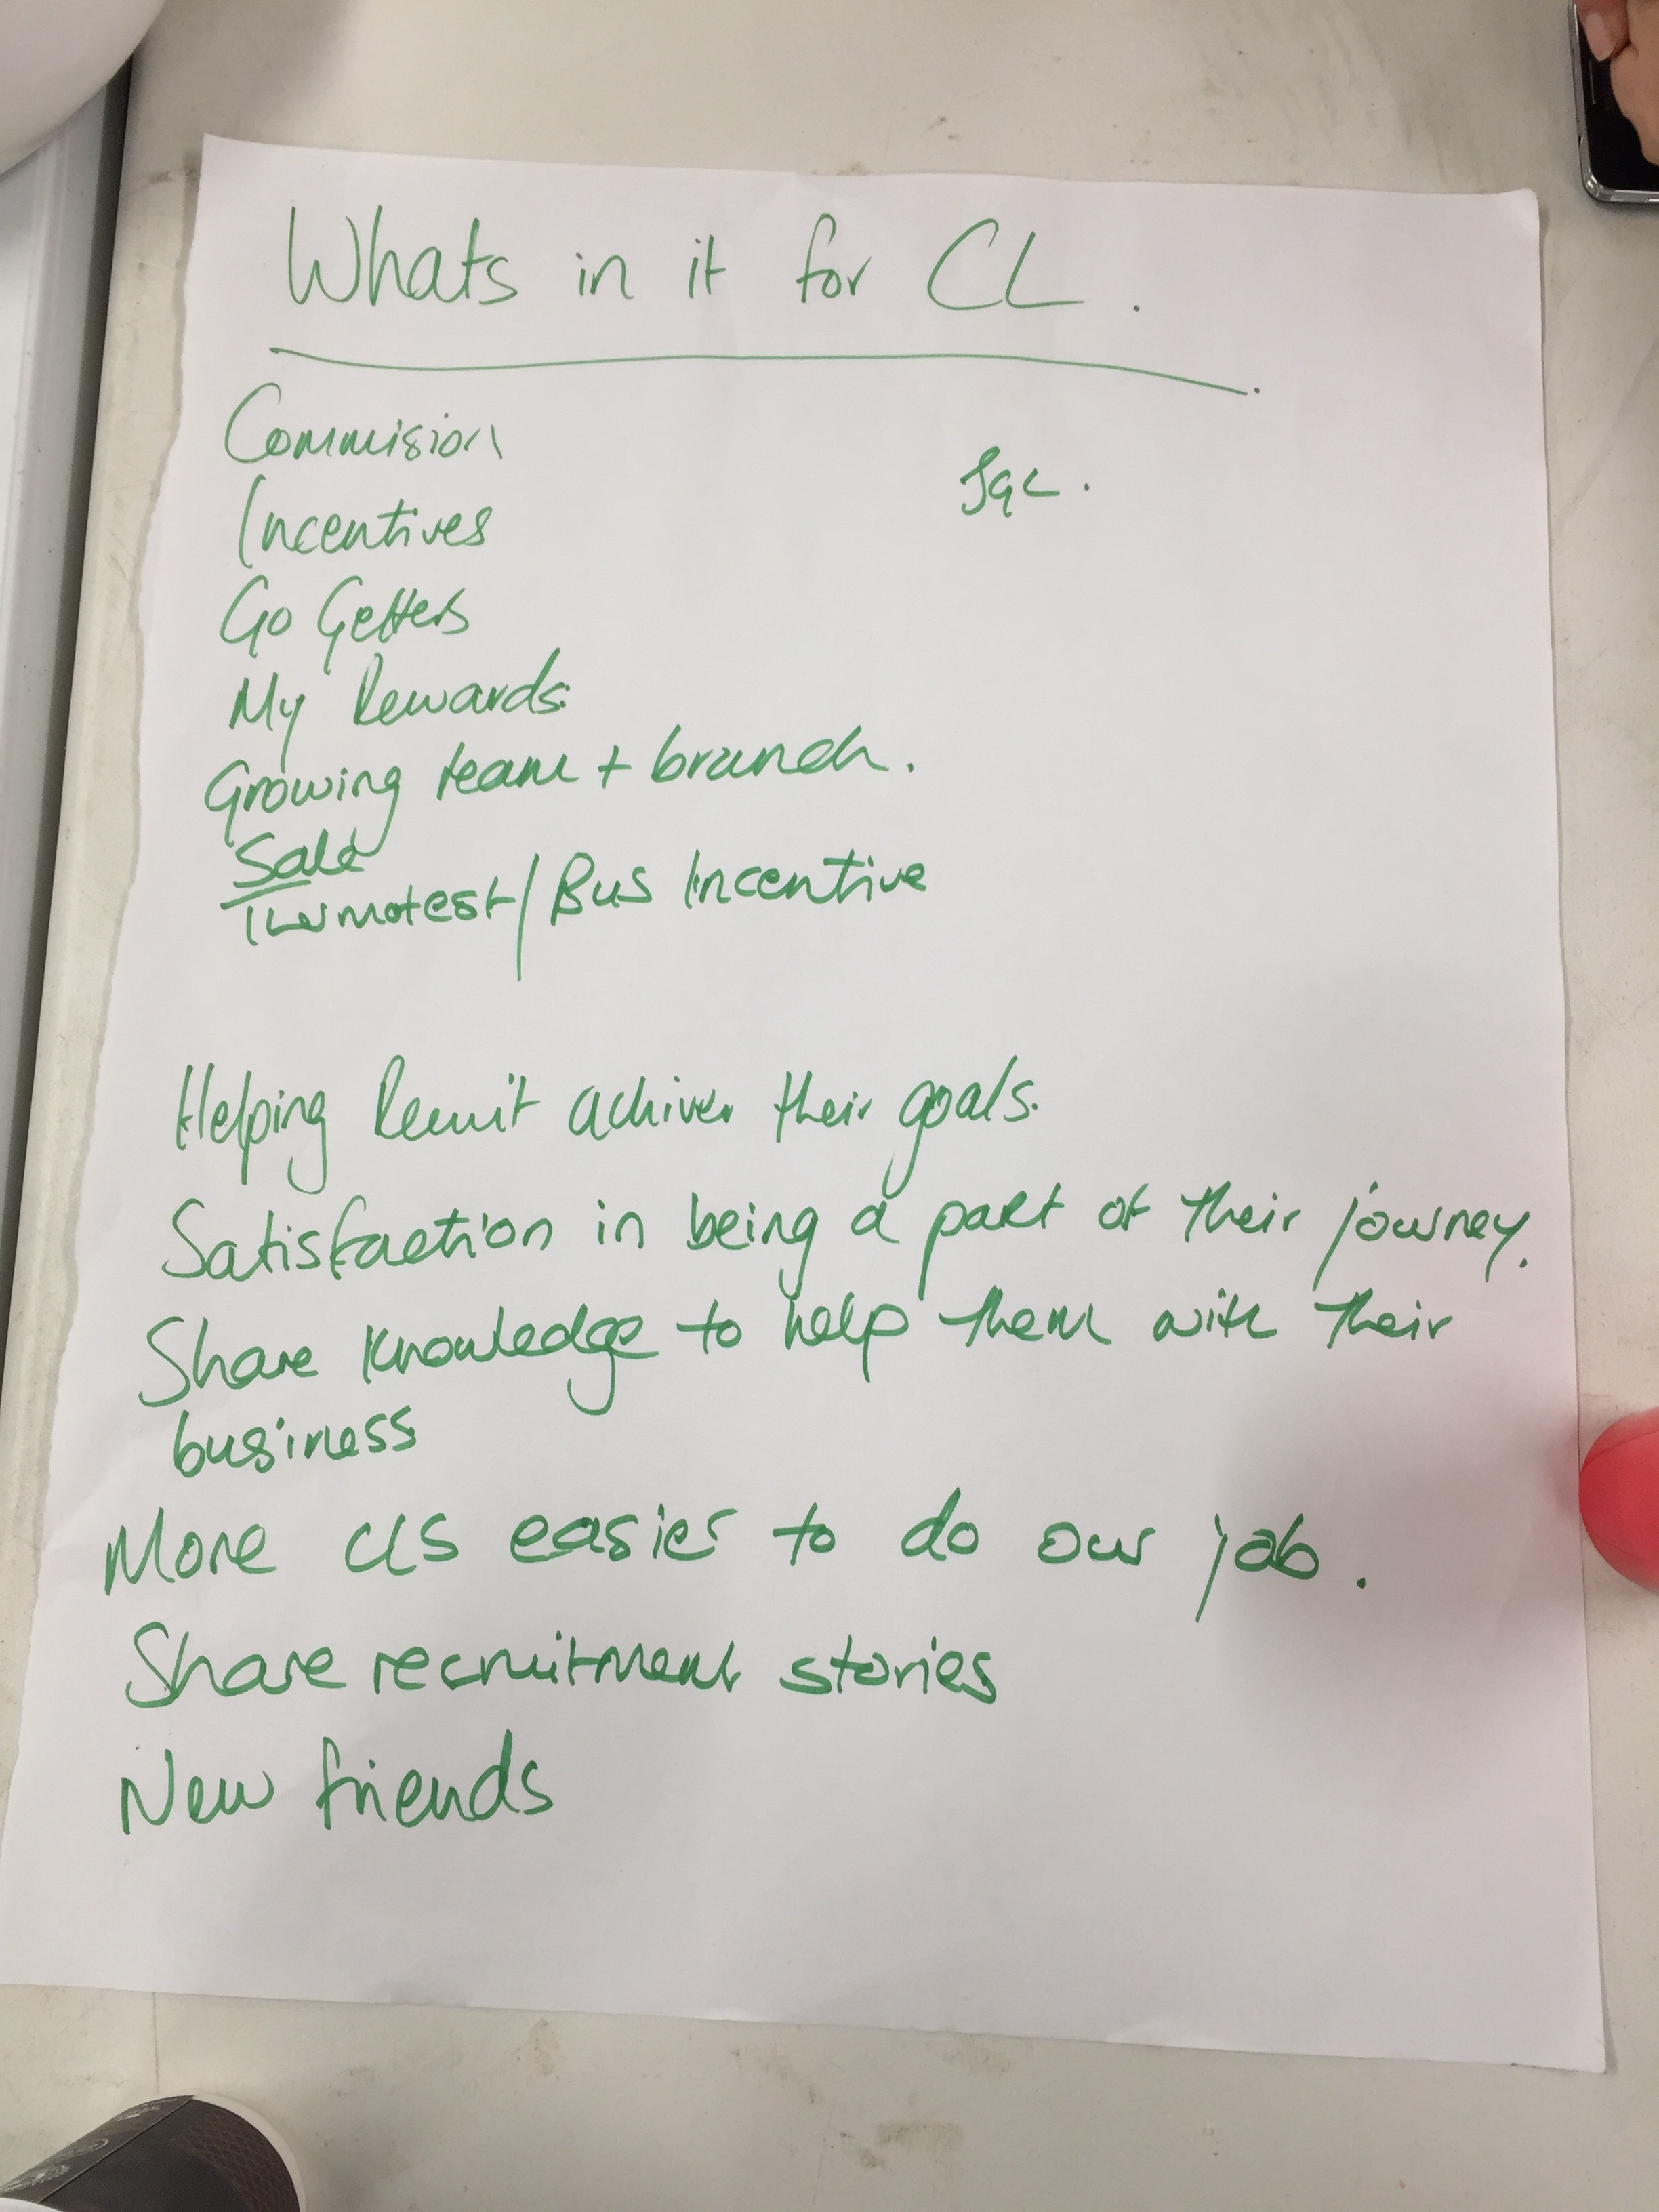 Whats in it for CL.
Commision
Incentives
Go Getters
My Rewards.
Growing team + branch.
/ Bus Incentive
Helping Recruit achiver their goals.
Satisfaction in being a part of their journey.
Share knowledge to help them with their
business
More CLS easier to do our job.
Share recruitment stories
New friends